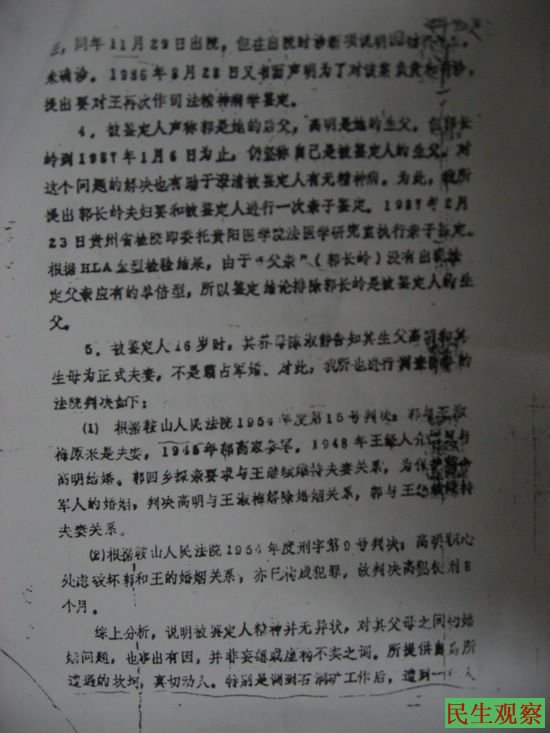 ，同年11月29日出院，但在出院时诊断项说明
未确诊。1986年8月28日又书面声明为了对该案负责
提出要对王再次作司法精神病学鉴定。
4．被鉴定人声称郭是她的后父，高明是她的生父。但郭长
岭到1987年1月6日为止，仍坚称自己是被鉴定人的生父。对
这个问题的解决也有助于澄清被鉴定人有无精神病。为此，我所
提出郭长岭夫妇要和被鉴定人进行一次亲子鉴定。1987年2月
23日贵州省检院即委托贵阳医学院法医学研究室执行亲子鉴定。
根据HLA血型检验结果，由于“父亲”（郭长岭）没有出现
定父亲应有的单倍型，所以鉴定结论排除郭长岭是被鉴定人的生
父。
5．被鉴定人16岁时，其养母陈淑静告知其生父高明和其
生母为正式夫妻，不是霸占军婚。对此，我所也进行调查
法院判决如下：
(1) 根据鞍山人民法院1954年度第15号判决：郭与王淑
梅原来是夫妻，1945年郭离家参军。1948年王经人介绍与
高明结婚。郭回乡探亲要求与王继续维持夫妻关系，为保护
军人的婚姻，判决高明与王淑梅解除婚姻关系，郭与王维持
夫妻关系。
(2)根据鞍山人民法院1954年度刑字第9号判决：高明
处虑破坏郭和王的婚姻关系，亦已构成犯罪，故判决高犯徒刑8
个月。
综上分析，说明被鉴定人精神并无异状，对其父母之间的婚
姻问题，也事出有因，并非妄想或虚构不实之词。所提供自己所
遭遇的坎坷，真切动人。特别是调到石洞矿工作后，遭到一人
民生观察